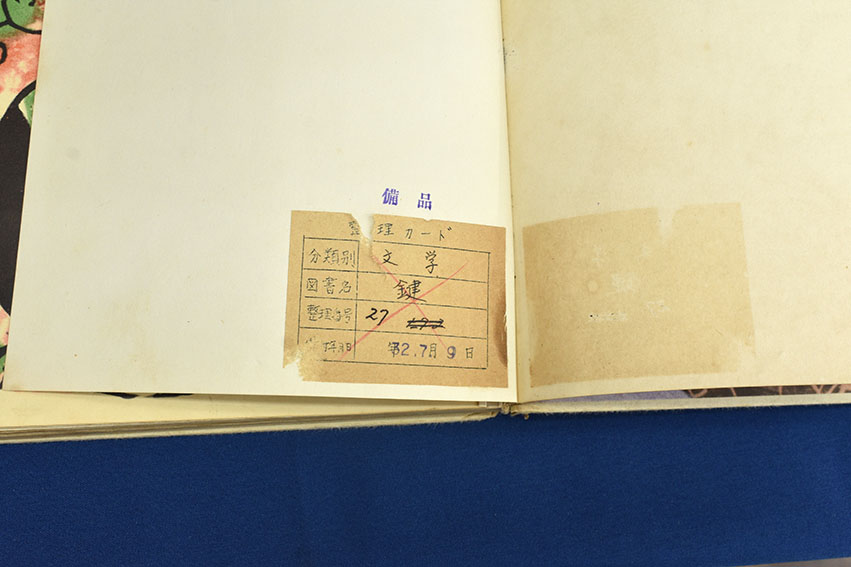 備品
整理カード
分類別 文学
図書名 鍵
整理番号 27
年 32.7月9日